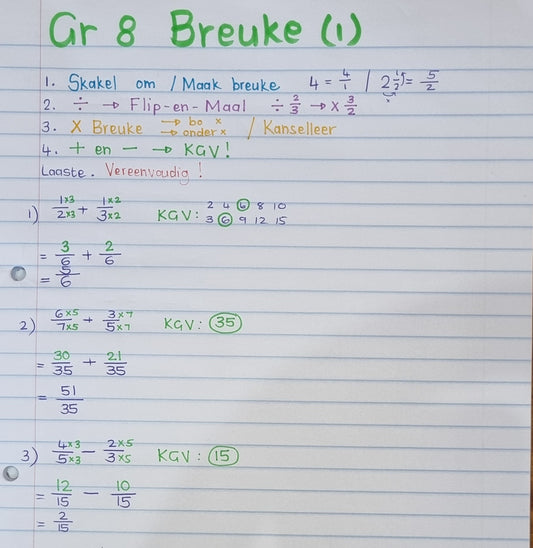 Gr 8 Breuke (1)
1. Skakel om / Maak breuke 4 = 4/1 / 2 1/2 = 5/2
2. ÷ → Flip-en-Maal ÷ 2/3 → x 3/2
3. X Breuke → bo x → onder x / Kanselleer
4. + en − → KGV!
Laaste. Vereenvoudig!
1) 1x3/2x3 + 1x2/3x2 KGV: 2 4 6 8 10
3 6 9 12 15
= 3/6 + 2/6
= 5/6
2) 6x5/7x5 + 3x7/5x7 KGV: 35
= 30/35 + 21/35
= 51/35
3) 4x3/5x3 − 2x5/3x5 KGV: 15
= 12/15 − 10/15
= 2/15